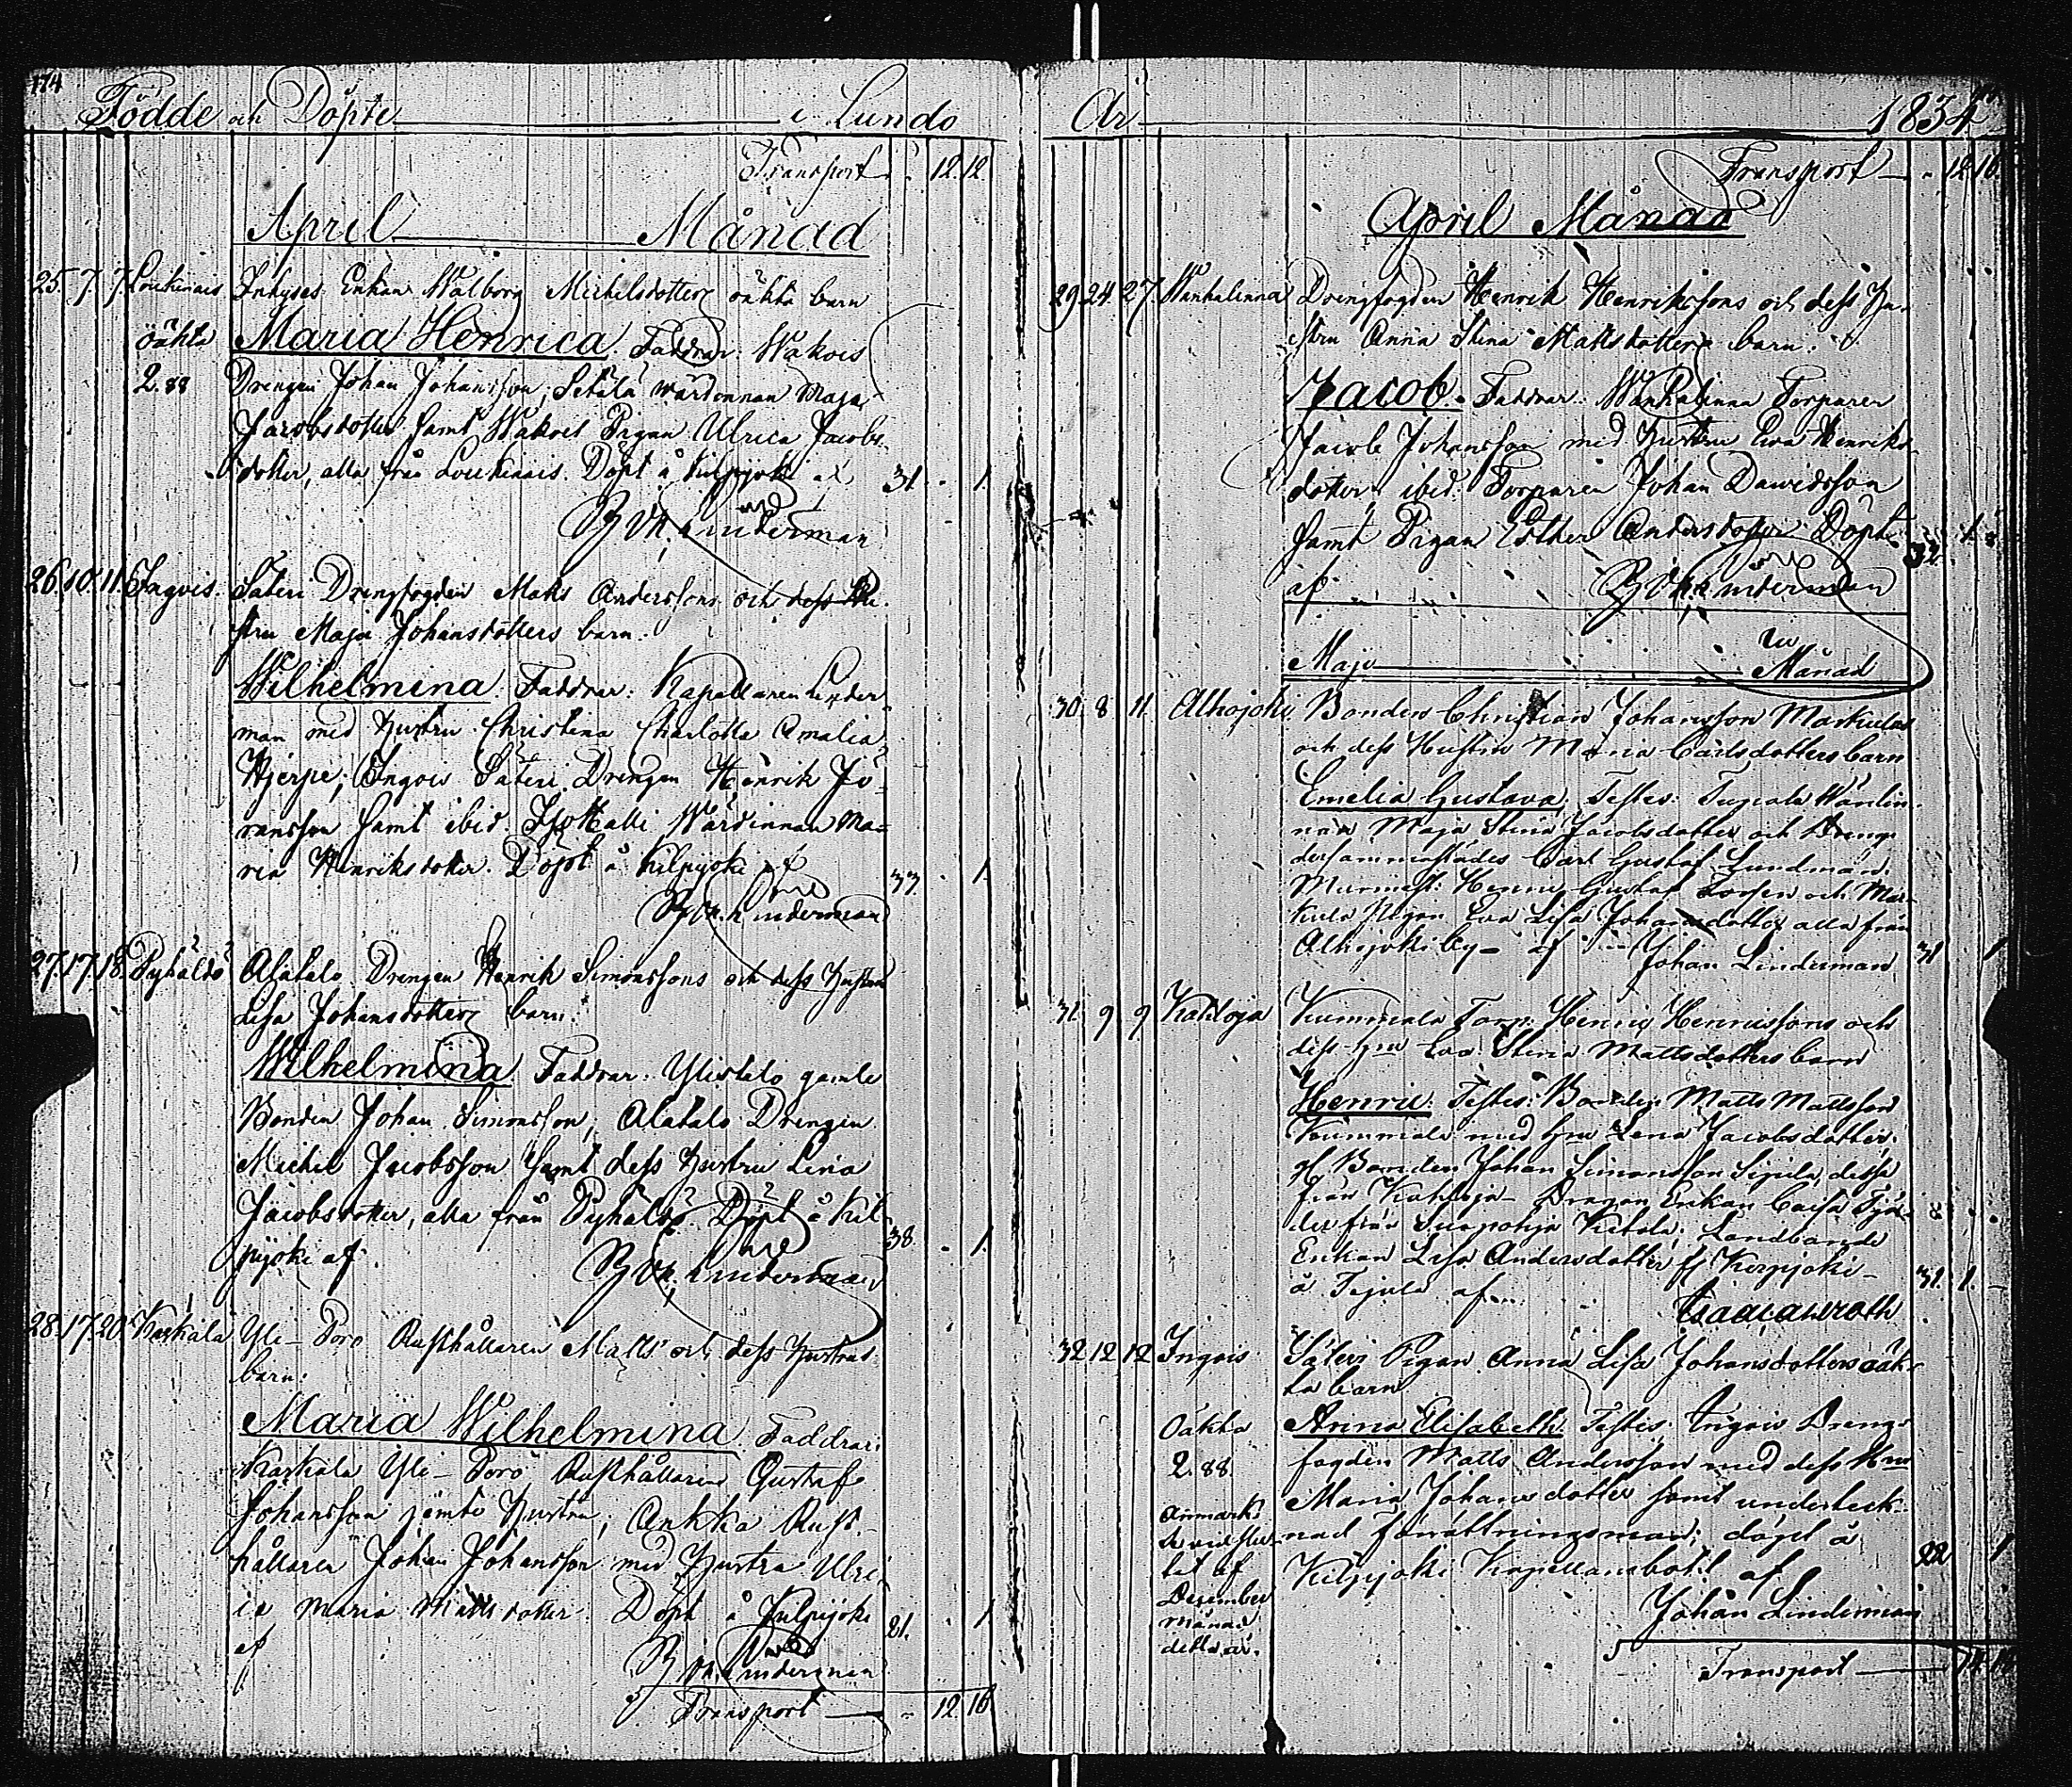 174
Födde och Döpte i Lundo
Transport 12. 12
April Månad
25. 7. 7. Loukinais Inhyses Enkan Walborg Michelsdotters oäkta barn
oäkta Maria Henrica. Faddrar: Wakois
2. 88 Drengen Johan Johansson, Setälä wärdinnan Maja
Jacobsdotter samt Wakois Pigan Ulrica Jacobs
dotter, alla från Loukinais. Döpt å Kilpijoki af 31. 1.
Joh. Linderman
26. 10. 11. Ingois. Säteri Drengfogden Matts Anderssons och dess Hu
stru Maja Johansdotters barn.
Wilhelmina. Faddrar: Kapellanen Linder
man med hustru Christina Charlotta Amalia
Hjerpe; Ingois Säteri Drengen Henrik Jö
ransson samt ibid Isotalli Wärdinnan Ma=
ria Henriksdotter. Döpt å Kilpijoki af 33. 1.
Joh. Linderman
27. 17. 18. Pyhältö Alatalo Drengen Henrik Simonssons och dess hustru
Lisa Johansdotters barn.
Wilhelmina Faddrar: Ylistalo gamle
Bonden Johan Simonsson, Alatalo Drengen
Michel Jacobsson samt dess hustru Lena
Jacobsdotter, alla från Pyhältö. Döpt å Kil
pijoki af. 38. 1.
Joh. Linderman
28. 17. 20. Kaskala Yli-Poro Rusthållaren Matts och dess hustrus
barn.
Maria Wilhelmina. Faddrar:
Kaskala Yli-Poro Rusthållaren Gustaf
Johansson jemte hustru; Ankka Rust
hållaren Johan Johansson med hustru Ulri
ca Maria Mattsdotter. Döpt å Kilpijoki 21. 1
af
Joh. Linderman
Transport 12 16
År 1834
Transport 12 16.
April Månad
29 24. 27. Wanhalinna Drengfogden Henrik Henrikssons och dess Hu
stru Anna Stina Mattsdotters barn.
Jacob. Faddrar: Wanhalinna Torparen
Jacob Johansson med hustru Ewa Henriks
dotter; ibid. Torparen Johan Dawidsson
samt Pigan Esther Andersdotter Döpt 32. 1.
af Joh. Linderman
Maji Månad
30. 8 11. Alhojoki Bonden Christian Johansson Markulas
och dess Hustru Maria Carlsdotters barn
Emelia Gustava. Testes: Wärdin
nan Maja Stina Jacobsdotter och Dreng
dersammastädes Carl Gustaf Lundman.
Murmest: Henric Gustaf och Mar
kula Pigan Eva Lisa Johansdotter alla från
Alhojoki by - af Johan Linderman 31 1
31. 9 9 Kahloja Kummala Torp: Henric Henricssons och
dess hru Eva Stina Mattsdotters barn
Henric. Testes: Bonden Matts Mattsson
Kummala med hru Lena Jacobsdotter.
gl. Bonden Johan Simonsson Sipilä, dessa
från Kahloja - Dragon Enkan Caisa
der från Suopohja Kietala; Landbonde
Enkan Lisa Andersdotter fr Kilpijoki -
å af 31. 1. -
32 12 12 Ingois Säteri Pigan Anna Lisa Johansdotters oäk
ta barn
Oäkta Anna Elisabeth. Testes: Ingois Dreng
2. 88. fogden Matts Andersson med dess Hru
Maria Johansdotter samt underteck
nad förrättningsman; döpt å
Kilpijoki Kapellansbohl af 22 1
Anmärkt
vid slu
tet af
December
månad
detta år.
Johan Linderman
Transport